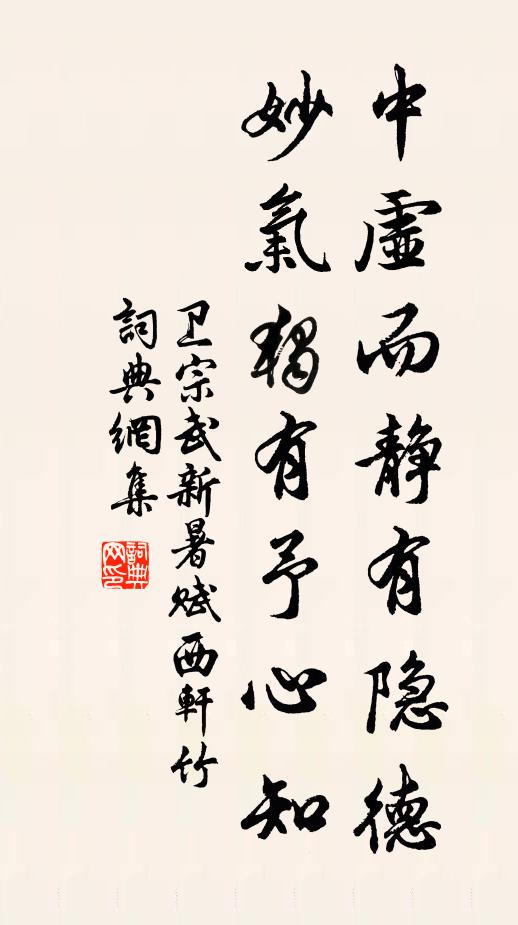 中虚而静有隐德
妙氣獨有予心知
卫宗武新暑赋西軒竹
詞典網集
詞典网印